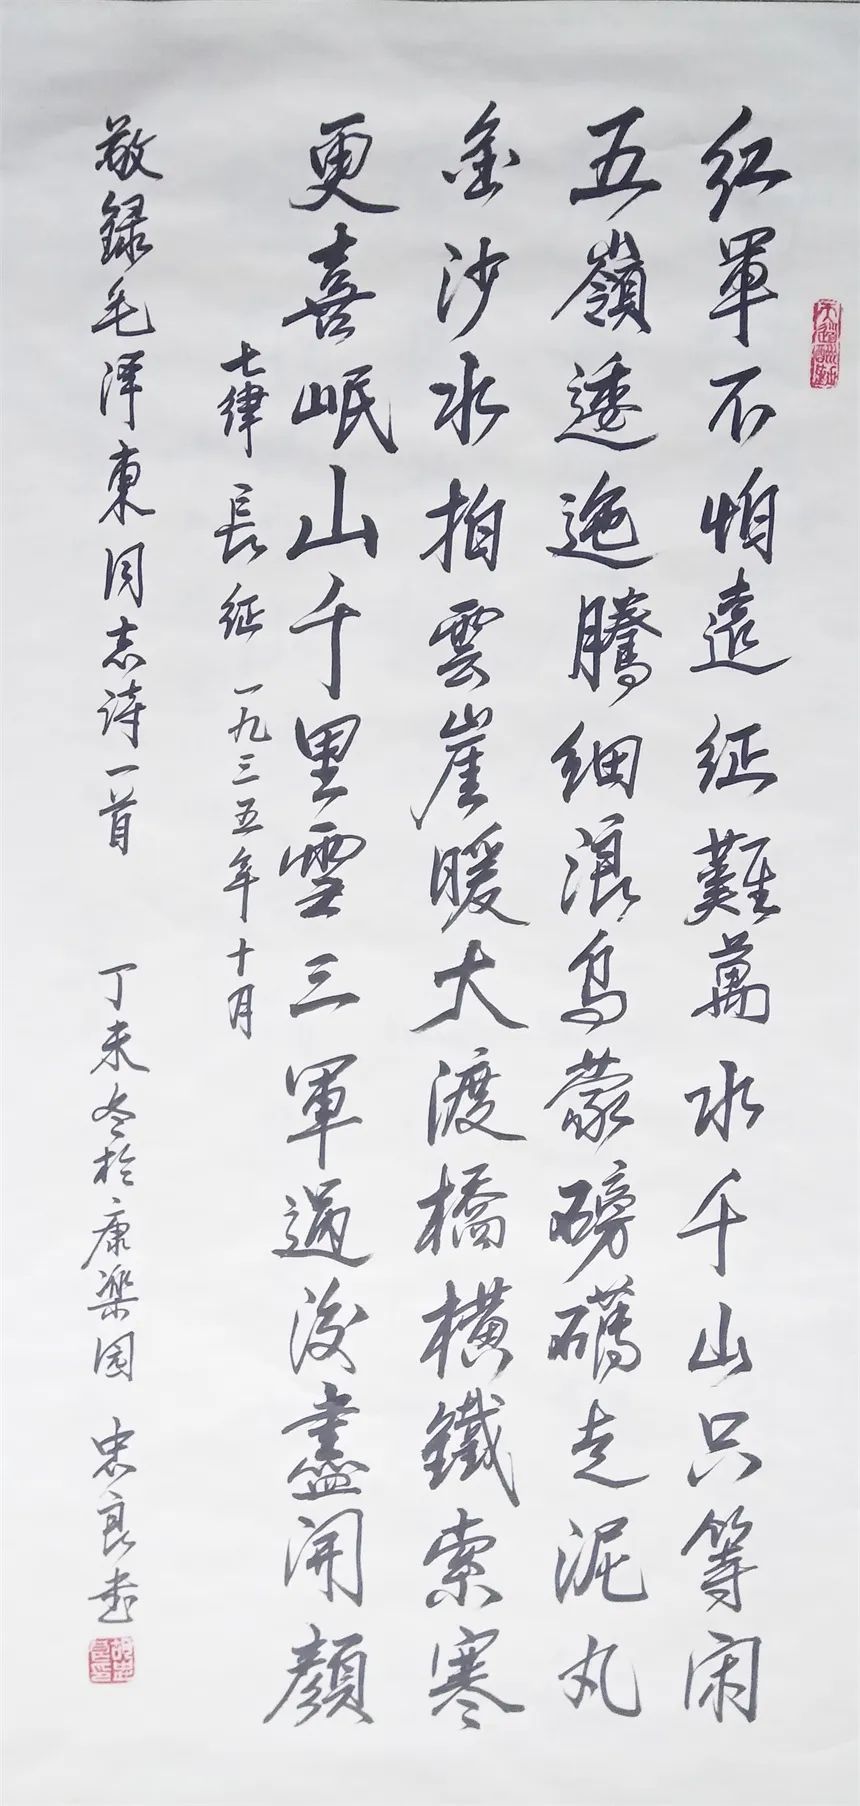 天道酬勤
紅軍不怕遠征難萬水千山只等闲
五嶺逶迤騰細浪烏蒙磅礴走泥丸
金沙水拍雲崖暖大渡橋橫鐵索寒
更喜岷山千里雪三軍過後盡開顏
七律 長征 一九三五年十月
敬録毛泽東同志诗一首 丁未冬於康樂园 忠良書